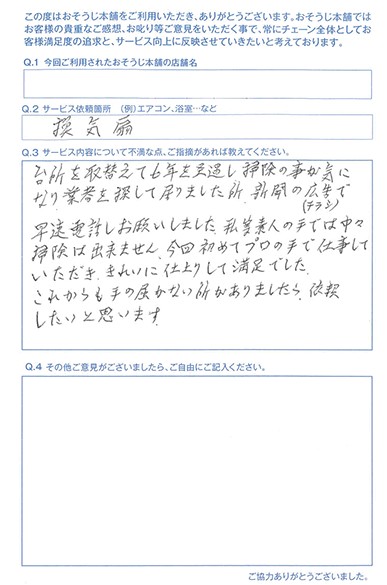 この度はおそうじ本舗をご利用いただき、ありがとうございます。おそうじ本舗では
お客様の貴重なご感想、お叱り等ご意見をいただく事で、常にチェーン全体としてお
客様満足度の追求と、サービス向上に反映させていきたいと考えております。
Q.1 今回ご利用されたおそうじ本舗の店舗名
Q.2 サービス依頼箇所 (例)エアコン、浴室…など
換気扇
Q.3 サービス内容について不満な点、ご指摘があれば教えてください。
台所を取替えて6年を経過し掃除の事が気に
なり業者を探して居りました所、新聞の広告で
(チラシ)
早速電話しお願いしました。私等素人の手では中々
掃除は出来ません。今回初めてプロの手で仕事して
いただき、きれいに仕上りして満足でした。
これからも手の届かない所がありましたら、依頼
したいと思います
Q.4 その他ご意見がございましたら、ご自由にご記入ください。
ご協力ありがとうございました。